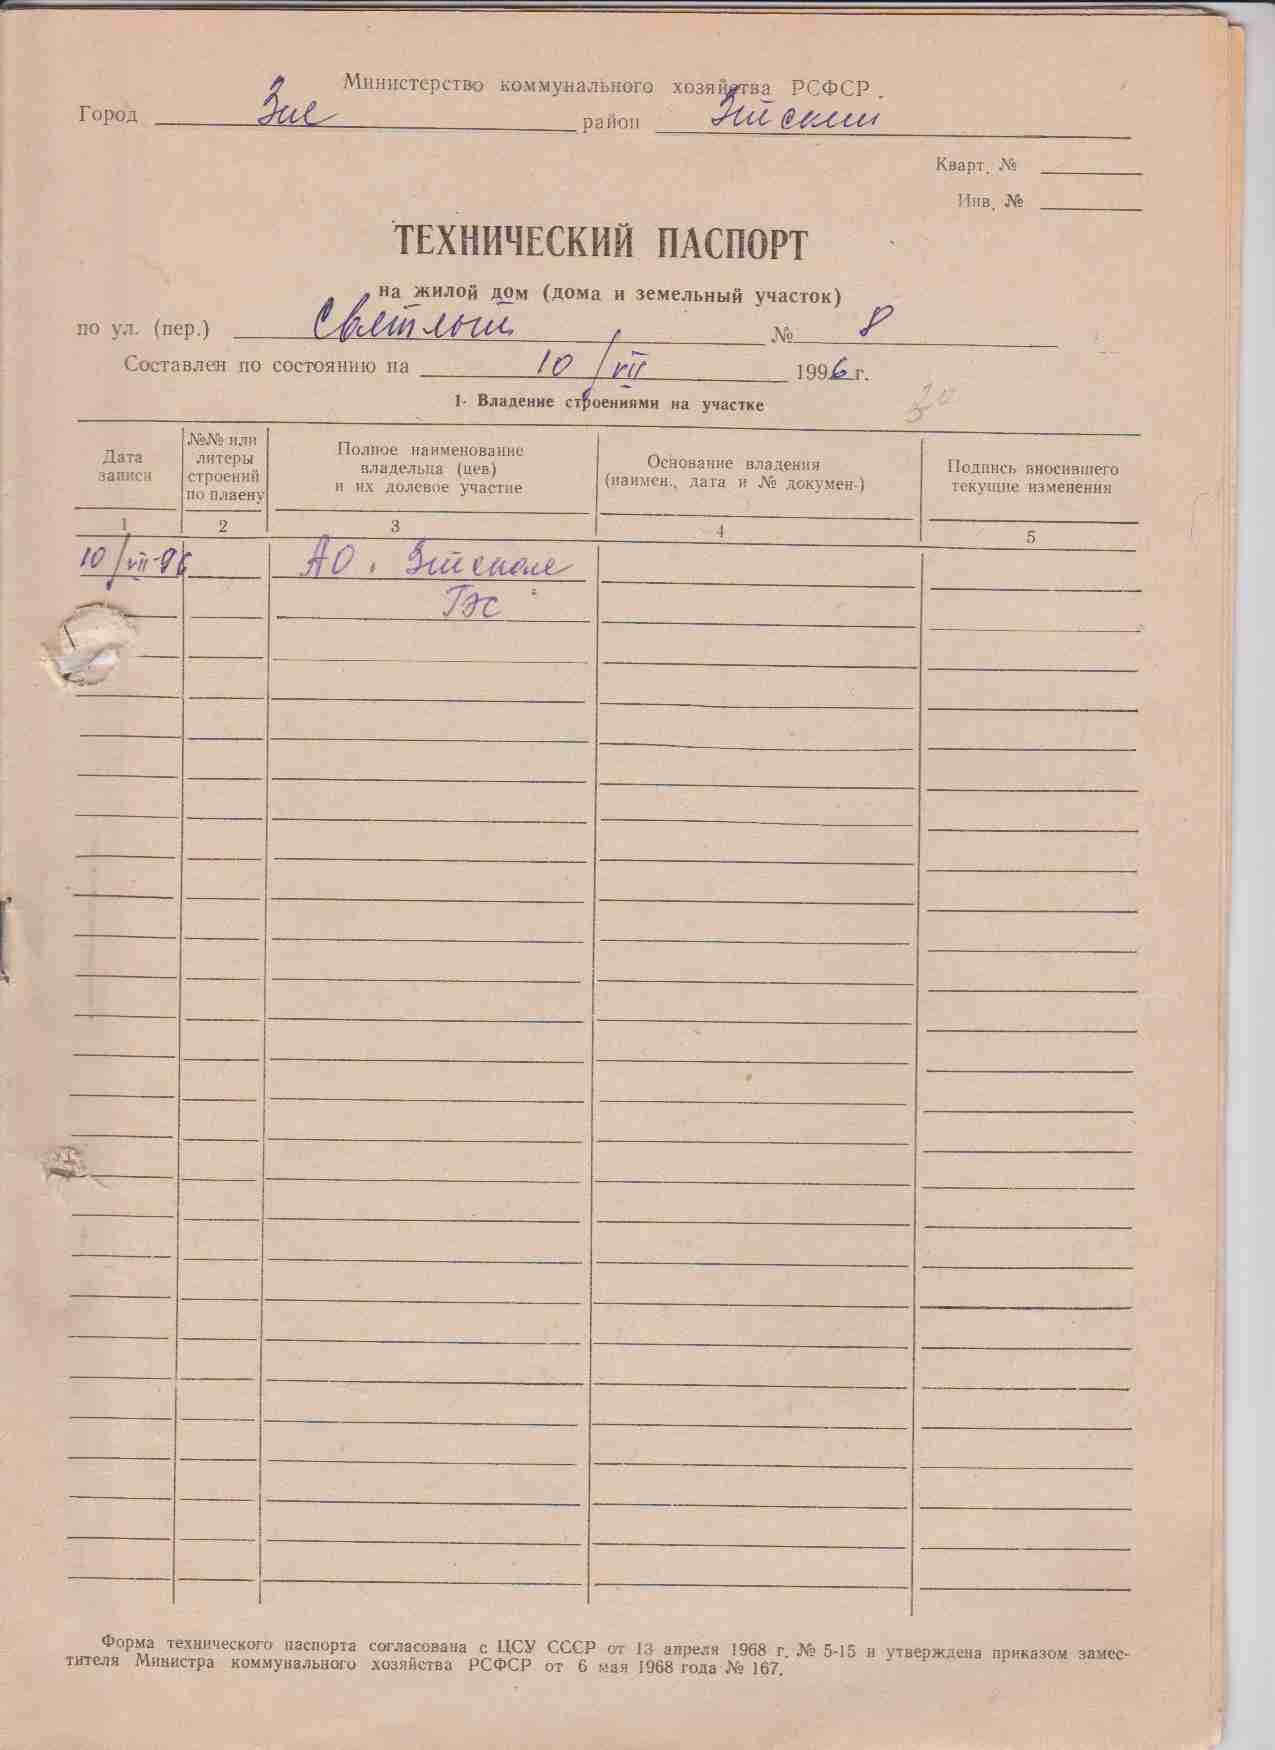 Министерство коммунального хозяйства РСФСР.
Город Зея район Зейский
Кварт. №
Инв. №
ТЕХНИЧЕСКИЙ ПАСПОРТ
на жилой дом (дома и земельный участок)
по ул. (пер.) Светлый № 8
Составлен по состоянию на 10/VII 1996 г.
1- Владение строениями на участке
Дата записи
№№ или литеры строений по плаену
Полное наименование владельца (цев) и их долевое участие
Основание владения (наимен., дата и № докумен-)
Подпись вносившего текущие изменения
1 2 3 4 5
10/VII-96 АО "Зейская
ГЭС"
Форма технического паспорта согласована с ЦСУ СССР от 13 апреля 1968 г. № 5-15 и утверждена приказом замес-
тителя Министра коммунального хозяйства РСФСР от 6 мая 1968 года № 167.